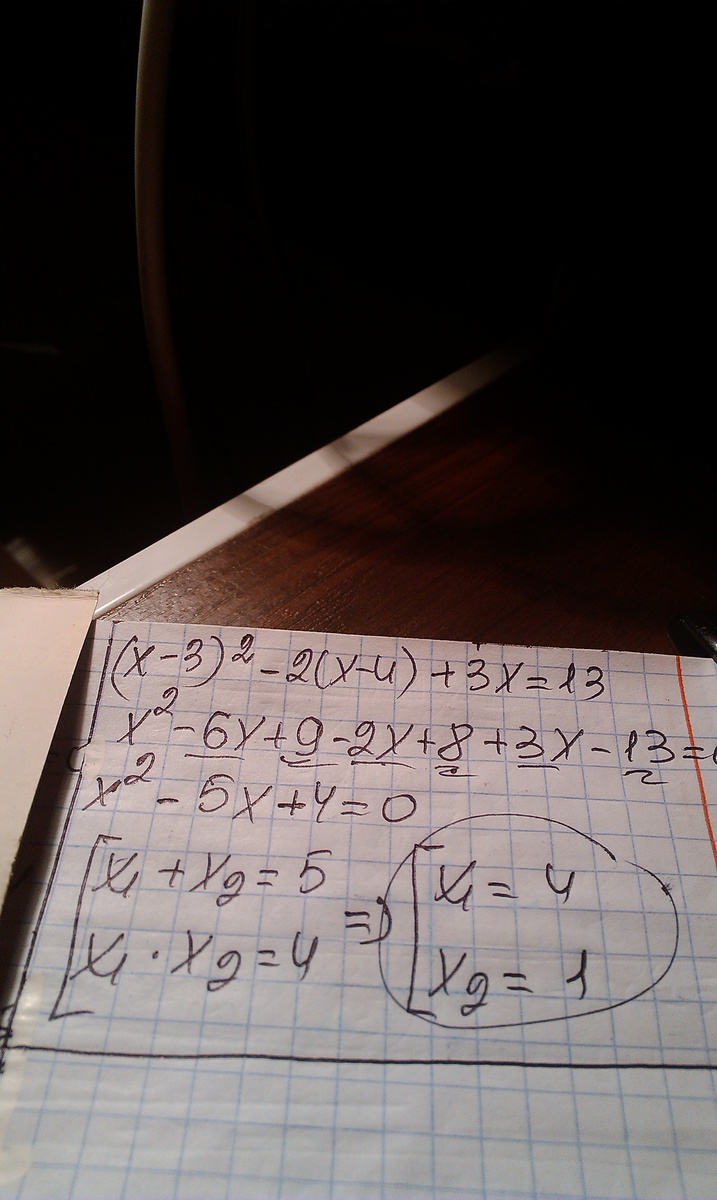 (x-3)² - 2(x-4) + 3x = 13
x² - 6x + 9 - 2x + 8 + 3x - 13 =
x² - 5x + 4 = 0
[ x₁ + x₂ = 5
x₁ · x₂ = 4
=> [ x₁ = 4
x₂ = 1